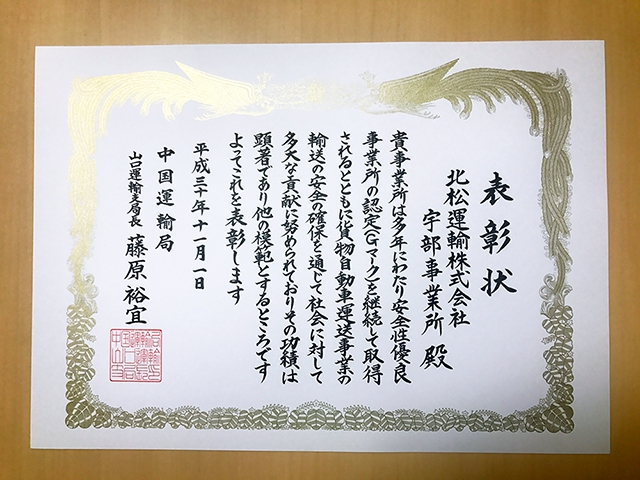 表彰状
北松運輸株式会社
宇部事業所 殿
貴事業所は多年にわたり安全性優良
事業所の認定(Gマーク)を継続して取得
されるとともに貨物自動車運送事業の
輸送の安全の確保を通じて社会に対して
多大な貢献に努められておりその功績は
顕著であり他の模範とするところです
よってこれを表彰します
平成三十年十一月一日
中国運輸局
山口運輸支局長 藤原裕宜